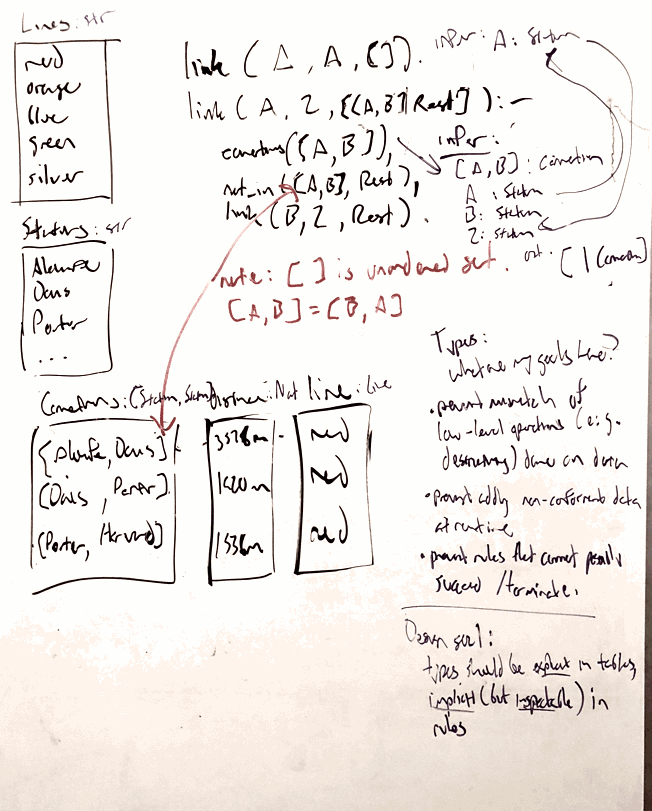 Lines: str
red
orange
blue
green
silver
Stations: str
Alewife
Davis
Porter
...
link(A, A, []).
infer: A: Station
link(A, Z, [[A,B]|Rest]) :-
connections([A,B]),
not_in([A,B], Rest),
link(B, Z, Rest).
infer:
[A,B]: Connection
A: Station
B: Station
Z: Station
out:
note: [ ] is unordered set.
[A,B]=[B,A]
Connections: [Station, Station]
Distance: Nat
line: Line
[Alewife, Davis]
3376m
red
[Davis, Porter]
1420m
red
[Porter, Harvard]
1536m
red
Types:
what are my goals here?
• prevent mismatch of
low-level operations (e.g.
destructuring) done on data
• prevent adding non-conformant data
at runtime
• prevent rules that cannot possibly
succeed/terminate.
Design goal:
types should be explicit in tables,
implicit (but inspectable) in
rules